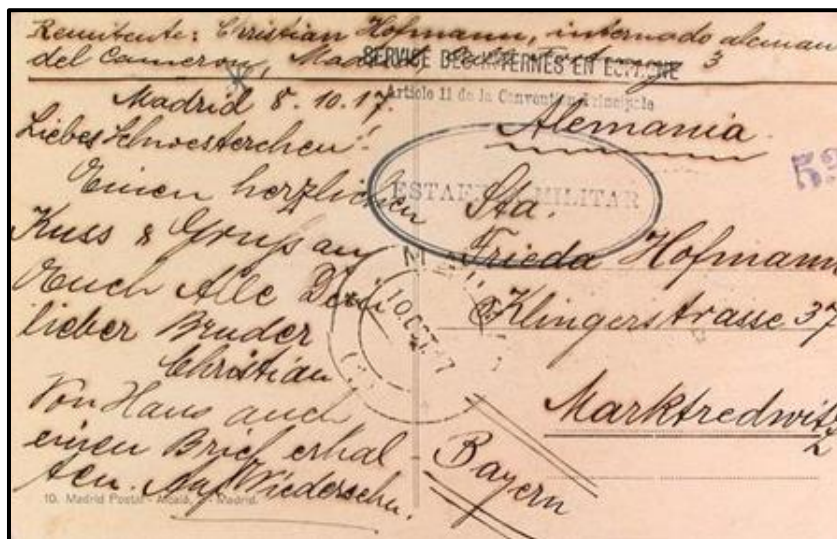 Remitente: Christian Hofmann, internado aleman
del Cameron, Madrid, 3
SERVICE DES INTERNÉS EN ESPAGNE
Article 11 de la Convention Principale
Madrid 8.10.17.
Liebes Schwesterchen!
Einen herzlichen
Kuss & Gruß an
Euch Alle Dein
lieber Bruder
Christian
Von Hans auch
einen Brief erhal-
ten. Auf Wiedersehn.
Alemania.
ESTAFETA MILITAR
Sta.
Frieda Hofmann
Klingerstrasse 37
Marktredwitz
Bayern
10.OCT.17
10. Madrid Postal - Alcalá, 2 - Madrid.